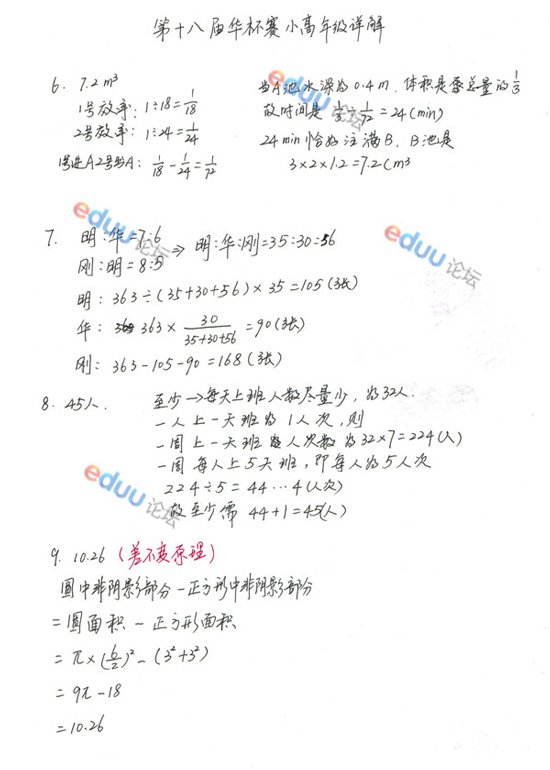 第十八届华杯赛小高年级详解
6. 7.2m³
1号放率: 1÷18=1/18
2号放率: 1÷24=1/24
1号进A2号出A: 1/18-1/24=1/72
当A池水深为0.4m, 体积是原总量的1/3
故时间是 1/3÷1/72=24(min)
24min恰好注满B, B池是
3×2×1.2=7.2(m³
eduu论坛
7. 明:华=7:6
刚:明=8:5
⇒ 明:华:刚=35:30:56
明: 363÷(35+30+56)×35=105(张)
华: 363×30/(35+30+56)=90(张)
刚: 363-105-90=168(张)
eduu论坛
eduu论坛
8. 45人.
至少→每天上班人数尽量少, 为32人.
一人上一天班为1人次, 则
一周上一天班人次数为32×7=224(人)
一周每人上5天班, 即每人为5人次
224÷5=44…4(人次)
故至少需 44+1=45(人)
eduu论坛
9. 10.26 (差不变原理)
圆中非阴影部分-正方形中非阴影部分
=圆面积-正方形面积
=π×(6/2)²-(3²+3²)
=9π-18
=10.26